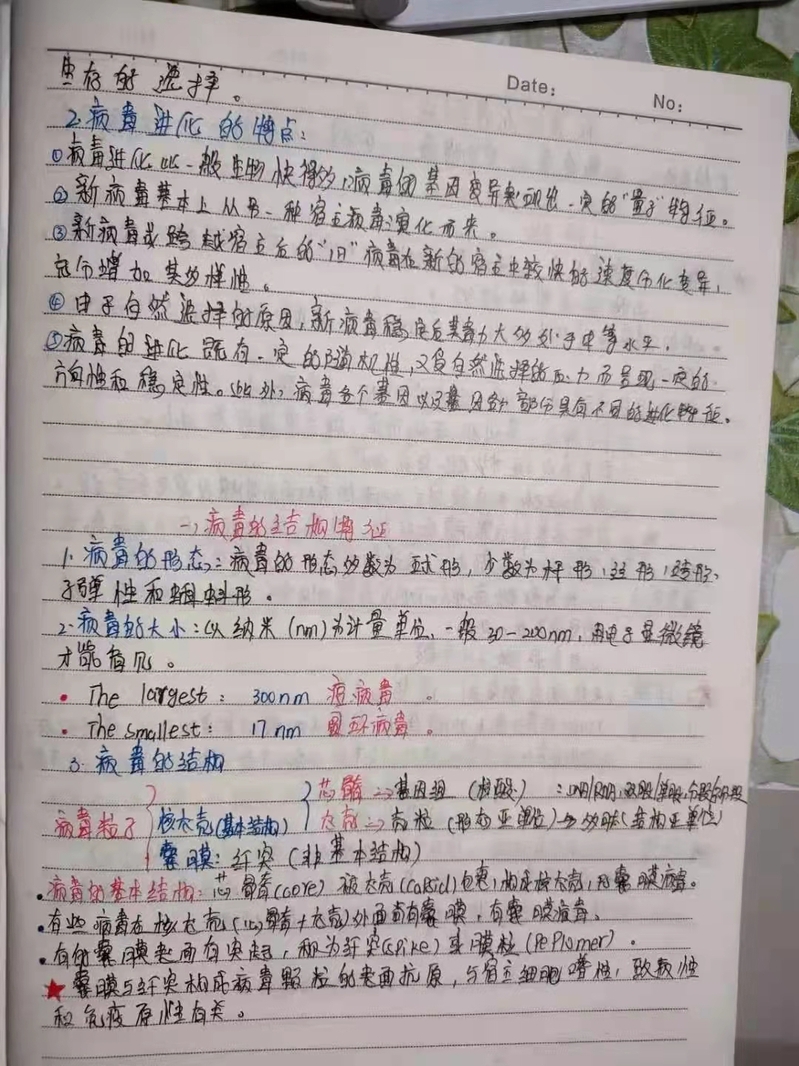 生存的选择。
Date:
No:
2.病毒进化的特点:
①病毒进化比一般生物快得多,病毒的基因变异表现出一定的“量子”特征。
②新病毒基本上从另一种宿主病毒演化而来。
③新病毒或跨越宿主后的“旧”病毒在新的宿主中较快的速度分化变异,
充分增加其多样性。
④由于自然选择的原因,新病毒稳定后其毒力大多处于中等水平.
⑤病毒的进化既有一定的随机性,又受自然选择的压力而呈现一定的
方向性和稳定性。此外,病毒各个基因以及基因各部分具有不同的进化特征。
一、病毒的结构特征
1.病毒的形态:病毒的形态多数为球形,少数为杆形,丝形,砖形、
子弹性和蝌蚪形。
2.病毒的大小:以纳米(nm)为计量单位、一般30-200nm,用电子显微镜
才能看见。
• The largest: 300nm 痘病毒。
• The smallest: 17nm 圆环病毒。
3.病毒的结构
芯髓→基因组(核酸):DNA/RNA,双股/单股,分段/不分段
病毒粒子 核衣壳(基本结构) 衣壳→壳粒(形态亚单位)→多肽(结构亚单位)
囊膜:纤突(非基本结构)
•病毒的基本结构:芯髓(core)被衣壳(capsid)包裹,构成核衣壳,囊膜病毒。
•有些病毒在核衣壳(芯髓+衣壳)外面有囊膜,有囊膜病毒。
•有的囊膜表面有突起,称为纤突(spike)或膜粒(peplomer)。
★囊膜与纤突构成病毒颗粒的表面抗原,与宿主细胞嗜性,致病性
和免疫原性有关。